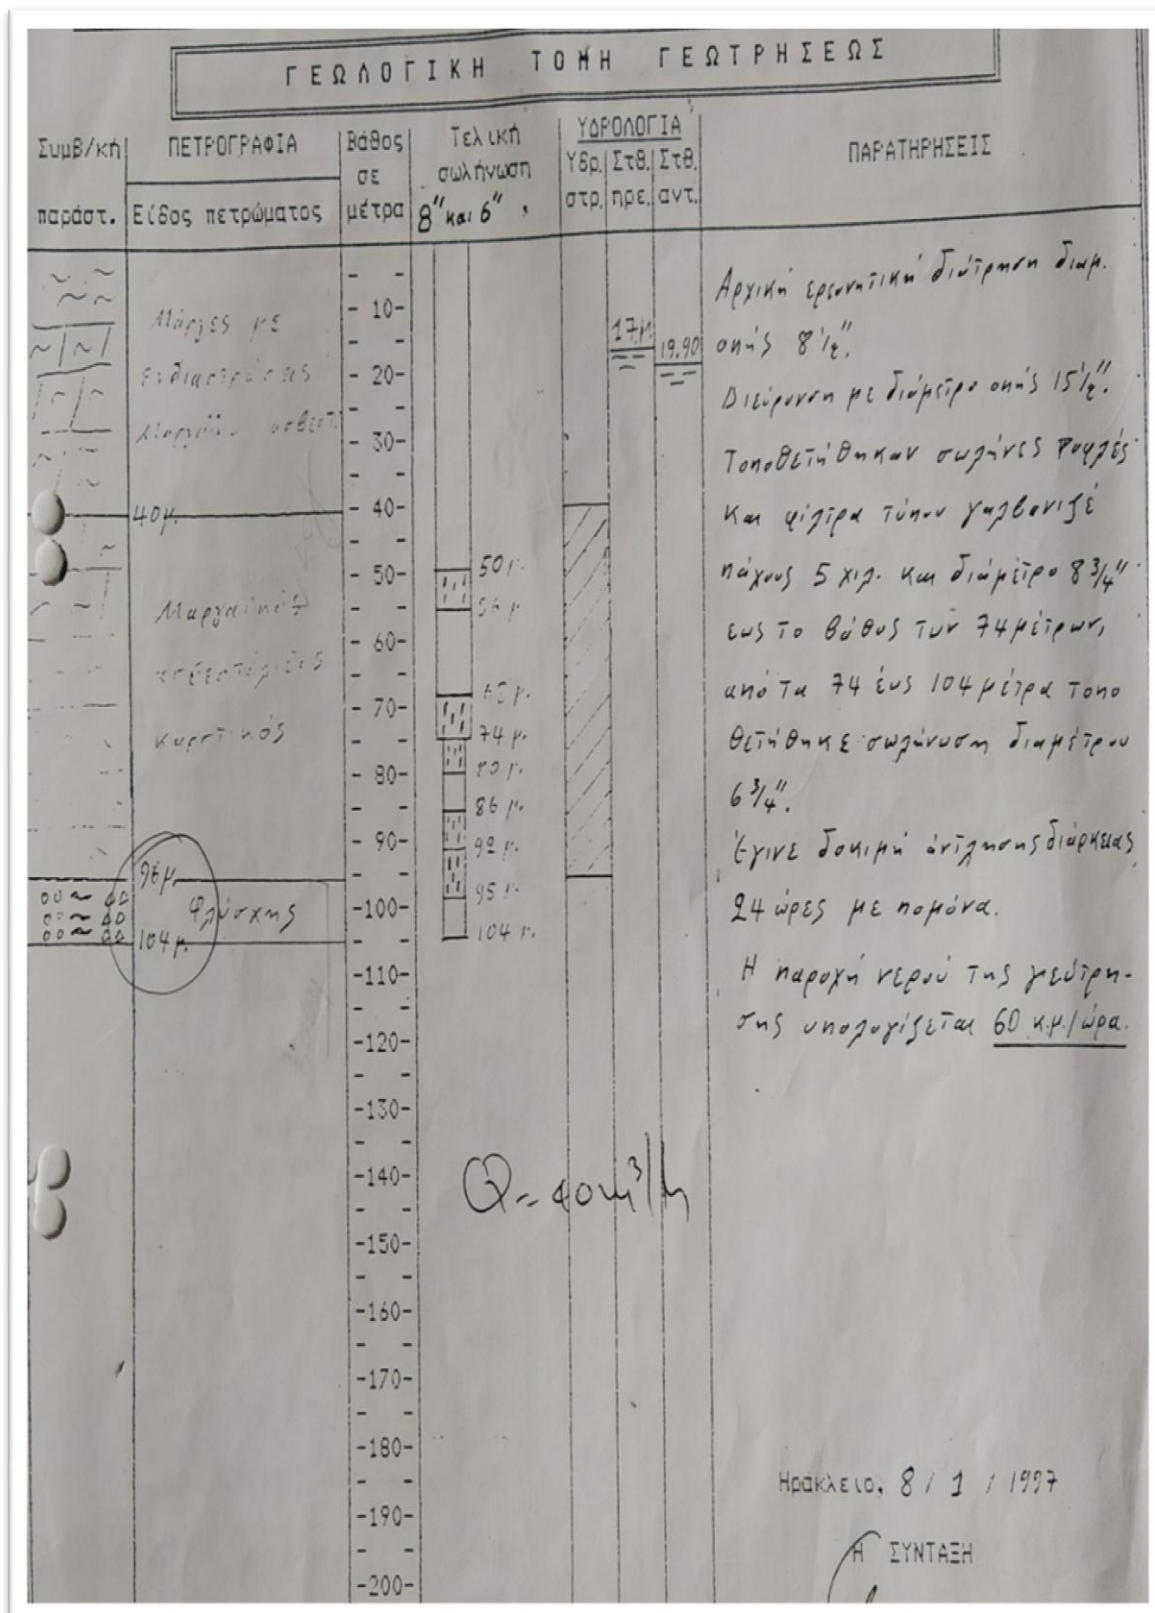 ΓΕΩΛΟΓΙΚΗ ΤΟΜΗ ΓΕΩΤΡΗΣΕΩΣ
Συμβ/κή παράστ.
ΠΕΤΡΟΓΡΑΦΙΑ
Είδος πετρώματος
Βάθος σε μέτρα
Τελική σωλήνωση
8" και 6"
ΥΔΡΟΛΟΓΙΑ
Υδρ. στρ.
Στθ. ηρε.
Στθ. αντ.
ΠΑΡΑΤΗΡΗΣΕΙΣ
Μάργες με
ενδιαστρώσεις
40μ.
Μαργαϊκός
καρστικός
96μ.
Φλύσχης
104μ.
- 10-
- 20-
- 30-
- 40-
- 50-
- 60-
- 70-
- 80-
- 90-
-100-
-110-
-120-
-130-
-140-
-150-
-160-
-170-
-180-
-190-
-200-
50μ.
56μ.
74μ.
86μ.
92μ.
104μ.
17μ.
19.90
Αρχική ερευνητική διάτρηση διαμ.
οπής 8 1/2".
Διεύρυνση με διάμετρο οπής 15 1/2".
Τοποθετήθηκαν σωλήνες τυφλές
και φίλτρα τύπου γαλβανιζέ
πάχους 5 χιλ. και διάμετρο 8 3/4"
εως το βάθος των 74 μέτρων,
από τα 74 έως 104 μέτρα τοπο
θετήθηκε σωλήνωση διαμέτρου
6 3/4".
Έγινε δοκιμή άντλησης διάρκειας
24 ώρες με πομόνα.
Η παροχή νερού της γεώτρη-
σης υπολογίζεται 60 κ.μ./ώρα.
Q= 40 m³/h
Ηράκλειο, 8 / 1 / 1997
Η ΣΥΝΤΑΞΗ